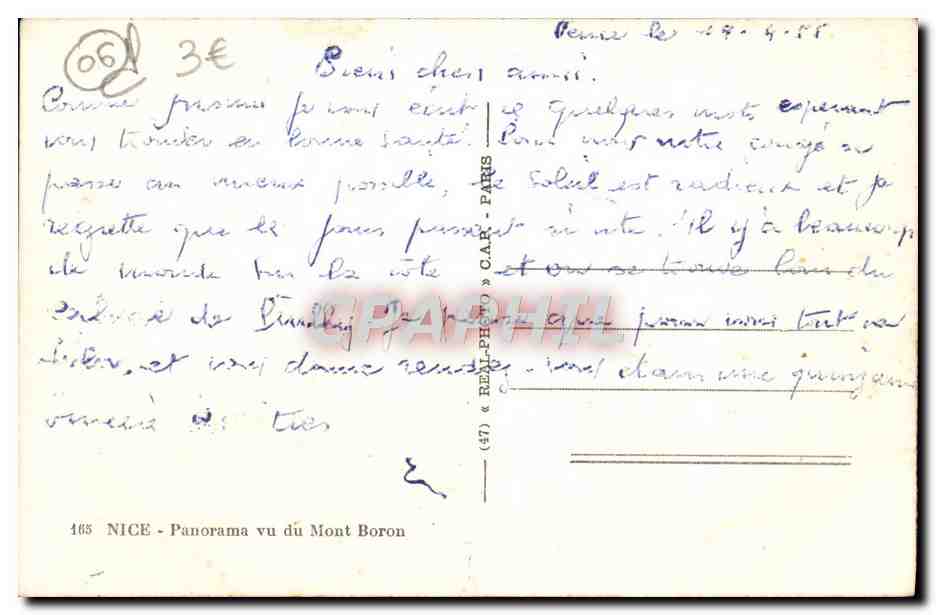 06
3€
le 4.55
Biens chers amis.
Comme promis je vous écrit ce quelques mots esperant
vous trouver en bonne santé. Pour nous notre congé se
passe au mieux possible, le soleil est radieux et je
regrette que les jours passent si vite. Il y'a beaucoup
de monde sur la côte et on se trouve loin du
de Je pense que pour vous tout va
bien, et vous donne rendez-vous dans une quinzaine
tres
165 NICE - Panorama vu du Mont Boron
(47) « REAL-PHOTO » C.A.P. - PARIS
CPAPHIL